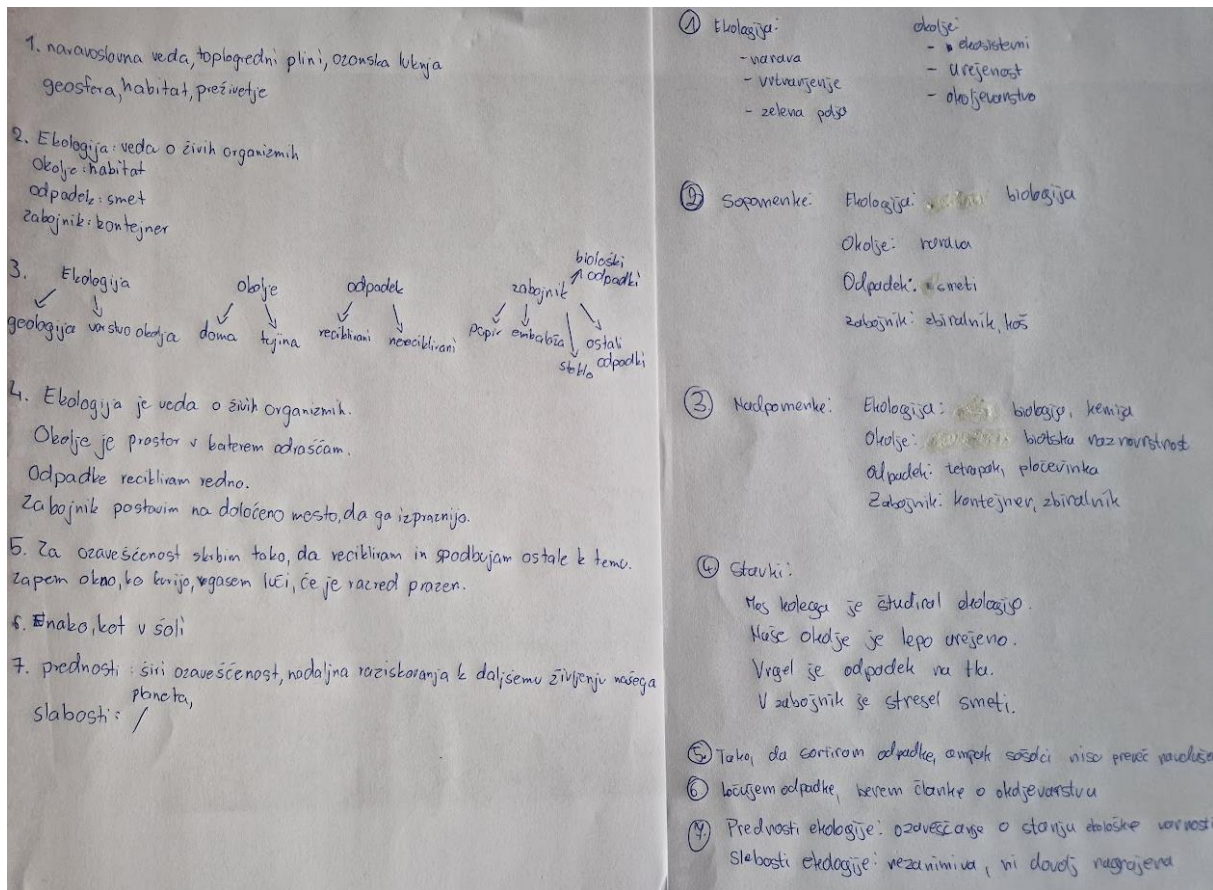 1. naravoslovna veda, toplogredni plini, ozonska luknja
geosfera, habitat, preživetje
2. Ekologija: veda o živih organizmih
Okolje: habitat
odpadek: smet
zabojnik: kontejner
3. Ekologija
geologija varstvo okolja
okolje
doma tujina
odpadek
reciklirani nereciklirani
zabojnik
biološki
odpadki
papir embalaža
steklo
ostali
odpadki
4. Ekologija je veda o živih organizmih.
Okolje je prostor v katerem odraščam.
Odpadke recikliram redno.
Zabojnik postavim na določeno mesto, da ga izpraznijo.
5. Za ozaveščenost skrbim tako, da recikliram in spodbujam ostale k temu.
Zaprem okno, ko kurijo, ugasem luči, če je razred prazen.
6. Enako, kot v šoli
7. prednosti: širi ozaveščenost, nadaljna raziskovanja k daljšemu življenju našega
planeta,
slabosti: /
① Ekologija:
- narava
- vrtnarjenje
- zelena polja
okolje:
- ekosistemi
- urejenost
- okoljevarstvo
② Sopomenke: Ekologija: biologija
Okolje: narava
Odpadek: smeti
zabojnik: zbiralnik, koš
③ Nadpomenke: Ekologija: biologija, kemija
Okolje: biotska raznovrstnost
Odpadek: tetrapak, pločevinka
Zabojnik: kontejner, zbiralnik
④ Stavki:
Moj kolega je študiral ekologijo.
Naše okolje je lepo urejeno.
Vrgel je odpadek na tla.
V zabojnik je stresel smeti.
⑤ Tako, da sortiram odpadke, ampak sošolci niso preveč
⑥ ločujem odpadke, berem članke o okoljevarstvu
⑦ Prednosti ekologije: ozaveščanje o stanju ekološke
Slabosti ekologije: nezanimiva, ni dovolj nagrajena